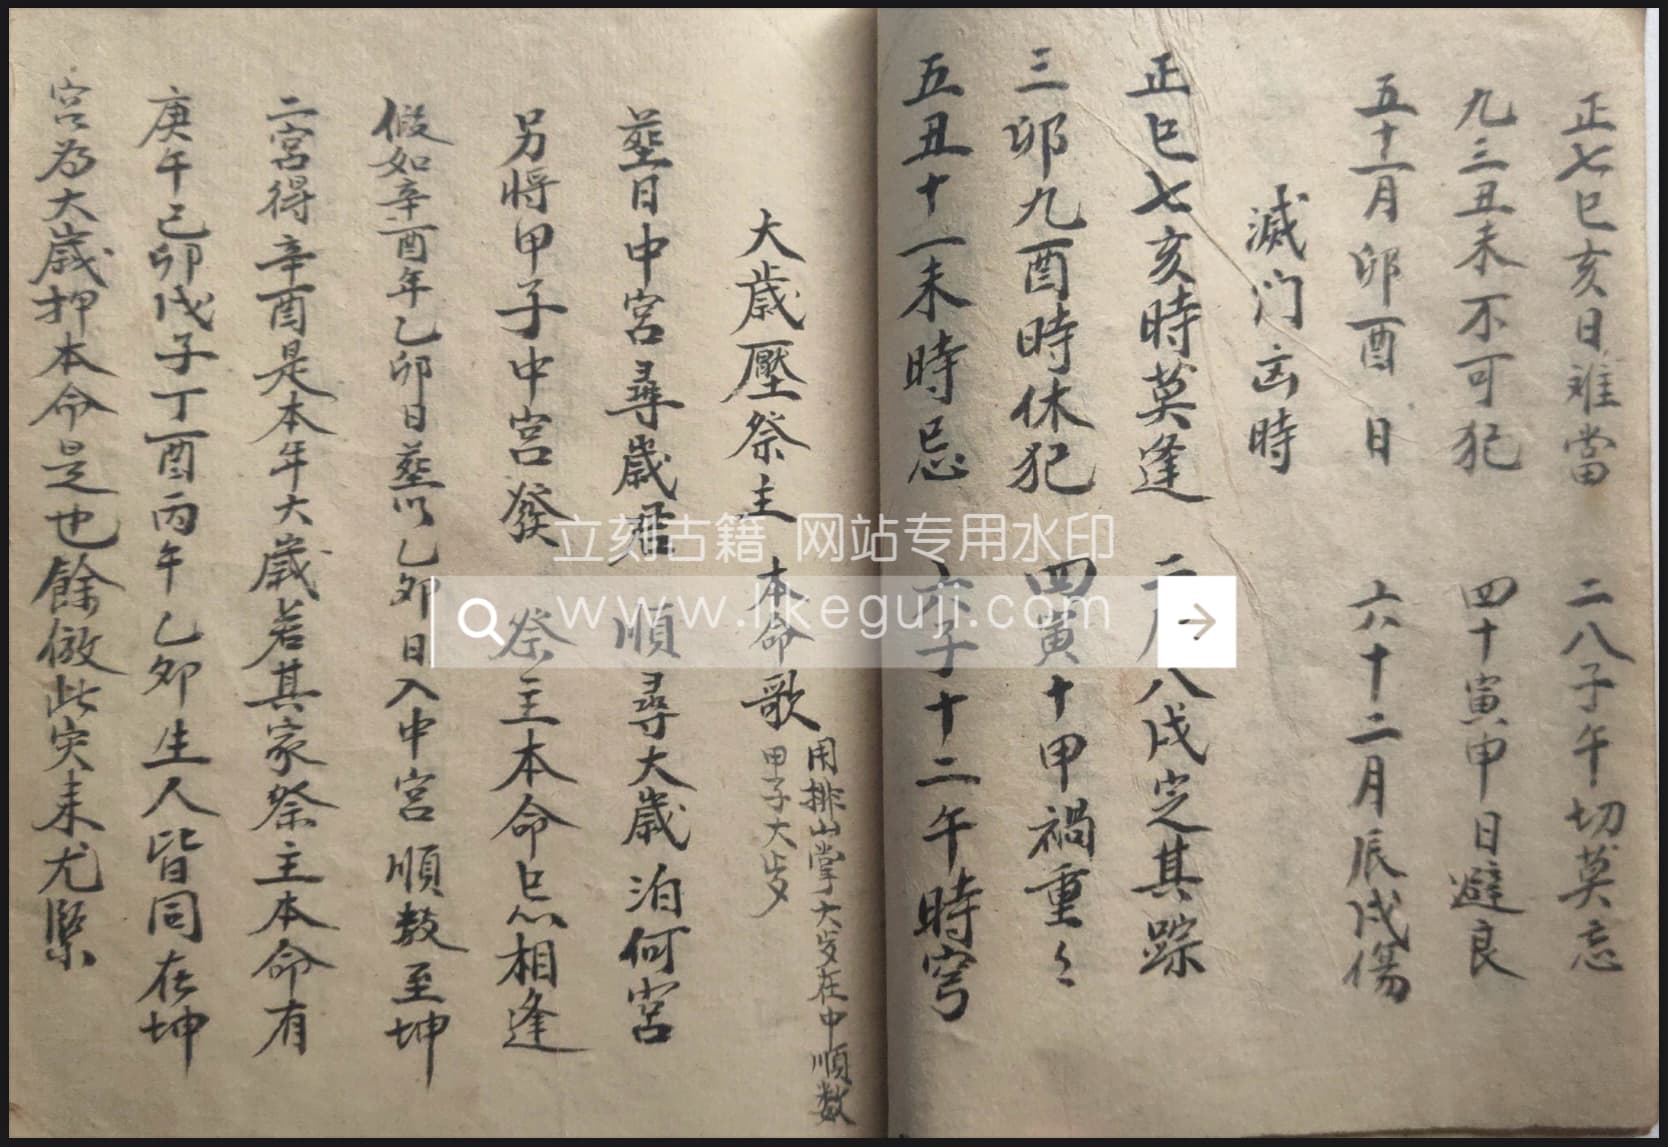 正七巳亥日难當 二八子午切莫忘
九三丑未不可犯 四十寅申日避良
五十一月卯酉日 六十二月辰戌傷
滅门凶時
正巳七亥時莫逢 二辰八戌定其踪
三卯九酉時休犯 四寅十甲禍重々
五丑十一未時忌 六子十二午時穹
大歲壓祭主 本命歌 用排山掌大岁在中順数
甲子大岁
塟日中宮尋歲君 順尋大歲泊何宮
另将甲子中宮發 祭主本命忌相逢
假如辛酉年乙卯日塟以乙卯日入中宮順数至坤
二宮得辛酉是本年大歲若其家祭主本命有
庚午己卯戊子丁酉丙午乙卯生人皆同在坤
宮为大歲押本命是也餘倣此灾来尤緊
立刻古籍 网站专用水印
www.likeguji.com